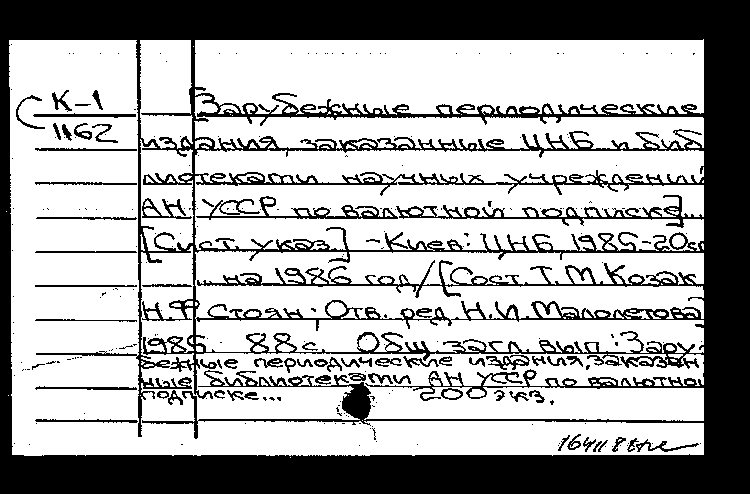 К-1
1162
[Зарубежные периодические
издания, заказанные ЦНБ и биб
лиотеками научных учреждений
АН УССР по валютной подписке]...
[Сист. указ.] - Киев: ЦНБ, 1986-20см
... на 1986 год / [Сост. Т.М. Козак,
Н.Ф. Стоян; Отв. ред. Н.И. Малолетова]
1986. 88 с. Общ. загл. вып.: Зару-
бежные периодические издания, заказан
ные библиотеками АН УССР по валютной
подписке... 200 экз.